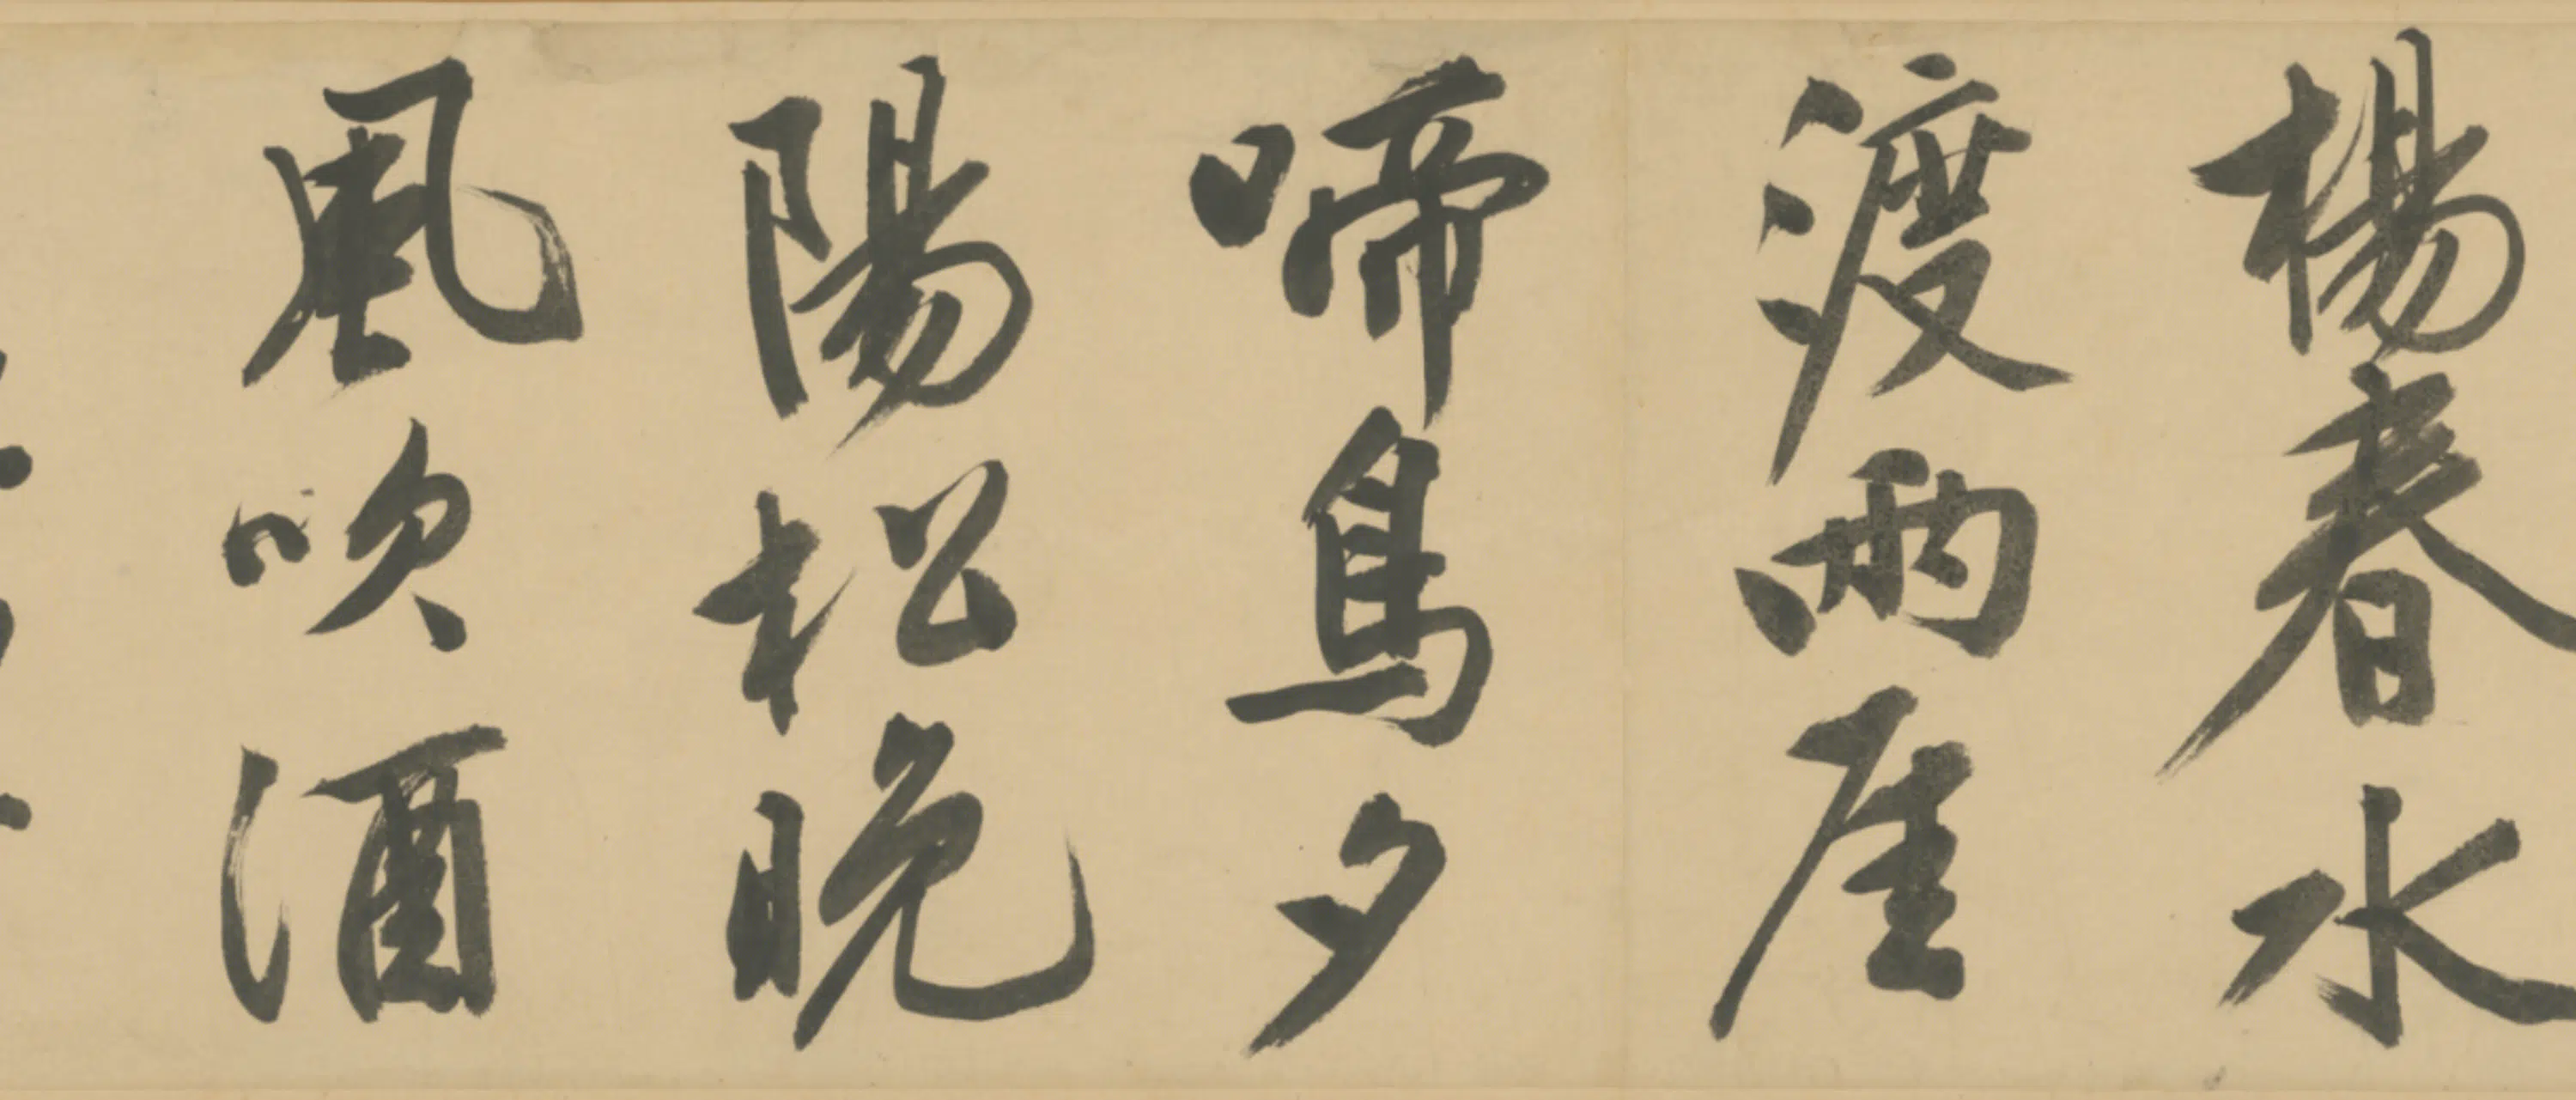 楊春水
渡兩厓
啼鳥夕
陽松晚
風吹酒